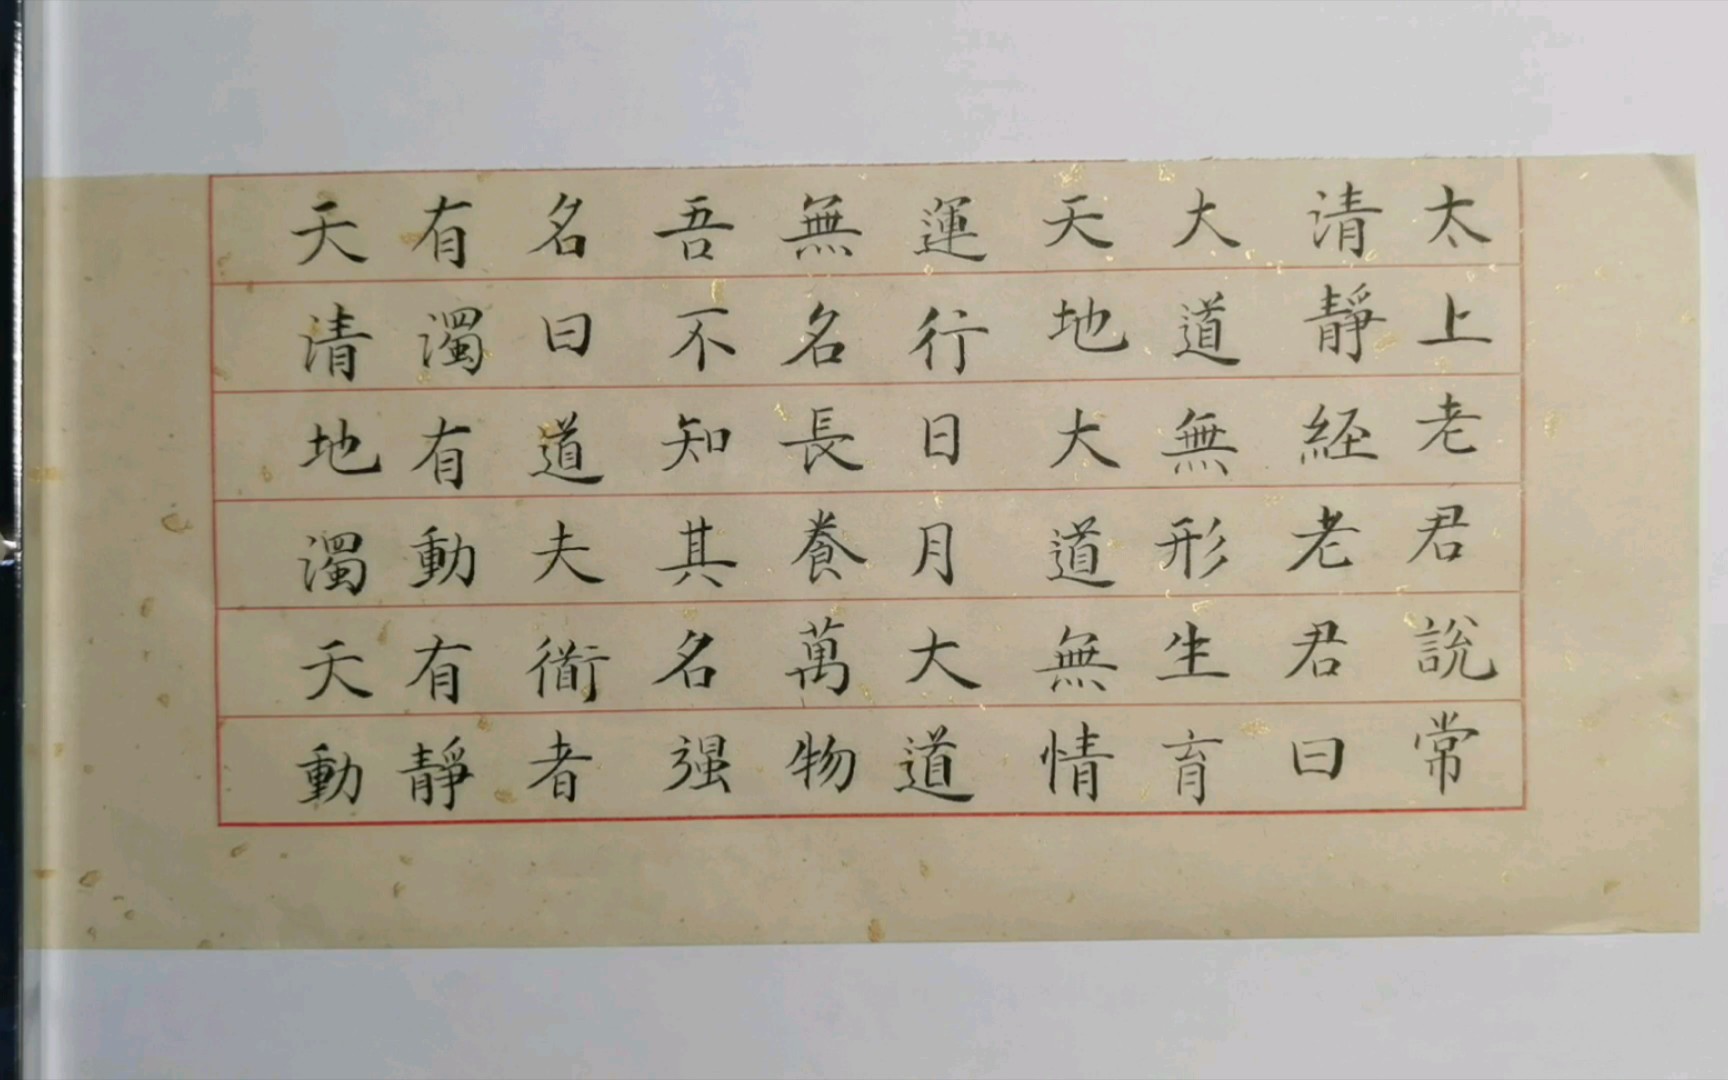 太上老君說常
清靜経老君曰
大道無形生育
天地大道無情
運行日月大道
無名長養萬物
吾不知其名强
名曰道夫衜者
有濁有動有靜
天清地濁天動